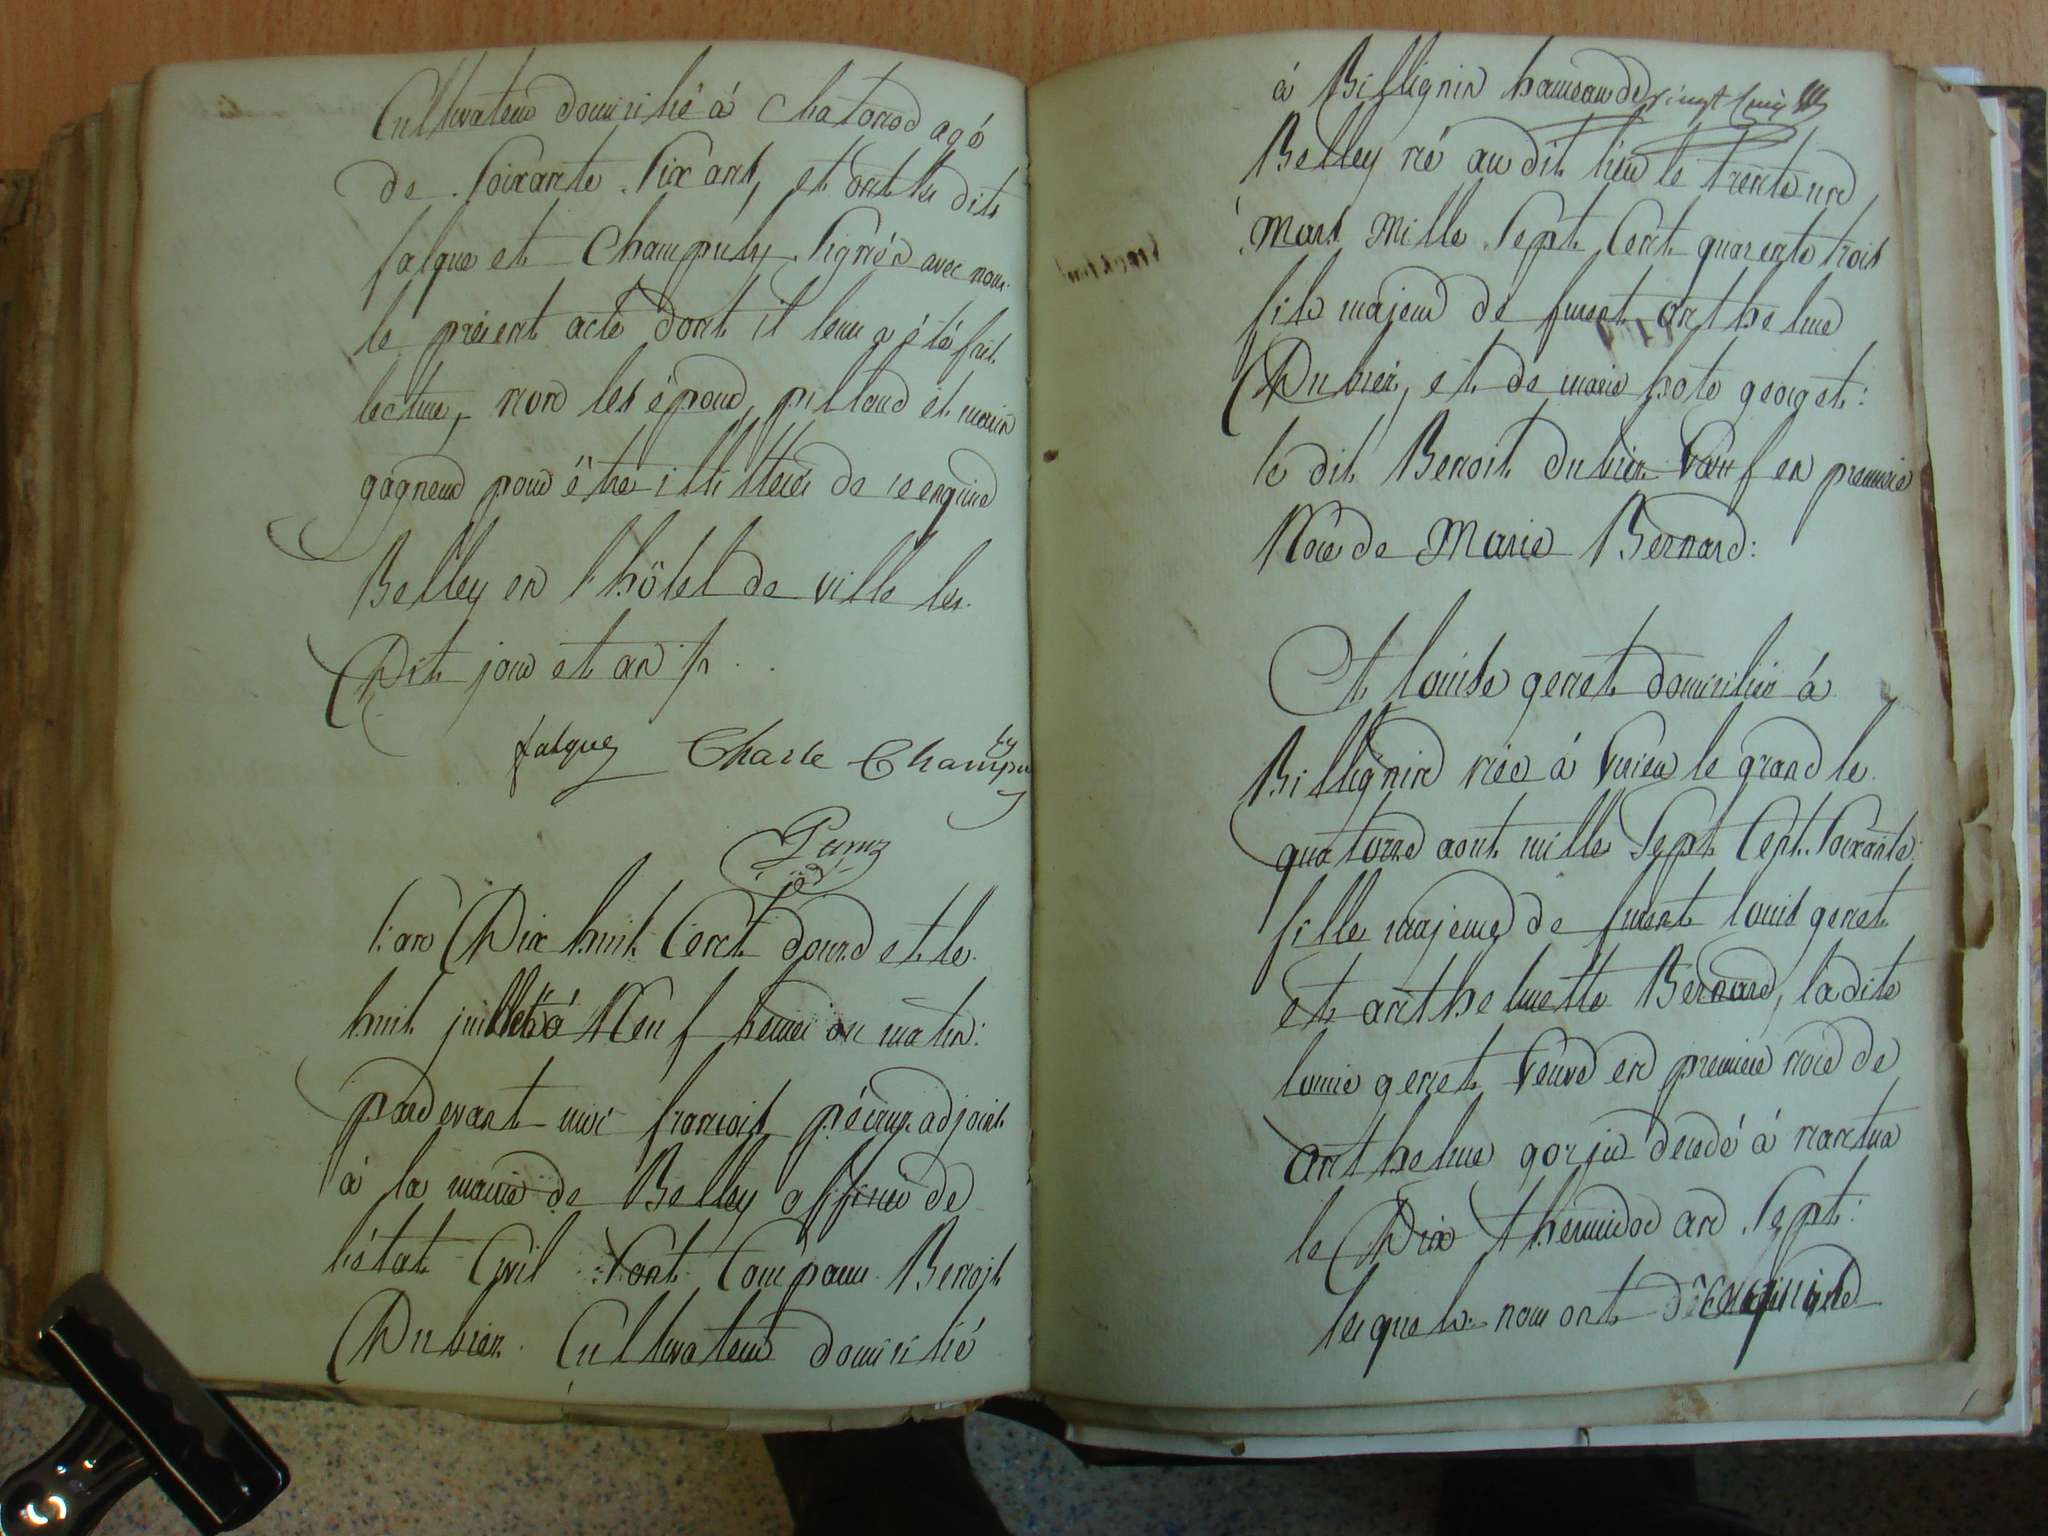 Cultivateur domicilié à Chatonod agé
de Soixante Six ans, et ont les dits
falque et Champuly Signés avec nous
le présent acte dont il leur a été fait
lecture, non les époux, pilloud et marin
gagneur pour être illitterés de ce enquis
Belley en l'hôtel de ville les
Dit jour et an
falque Charle Champuly
l'an Dix huit Cent douze et le
huit juillet à Neuf heures du matin:
pardevant moi françois adjoint
à la mairie de Belley officier de
l'état Civil Sont Comparu Benoit
Dubier Cultivateur domicilié
à Billignin hameau de vingt cinq
Belley né au dit lieu le trente un
Mars Mille Sept Cent quarente trois
fils majeur de furent anthelme
Dubier, et de marie georget:
le dit Benoit dubier Veuf en premiere
Noce de Marie Bernard:
Et louise genet domiciliée à
Billignin née à Virieu le grand le
quatorze aout mille Sept Cent Soixante:
fille majeure de furent louis genet
et anthelmette Bernard, la dite
louise genet Veuve en premiere noce de
anthelme gorju decedé à nantua
le Dix thermidor an Sept:
lesquels nous ont